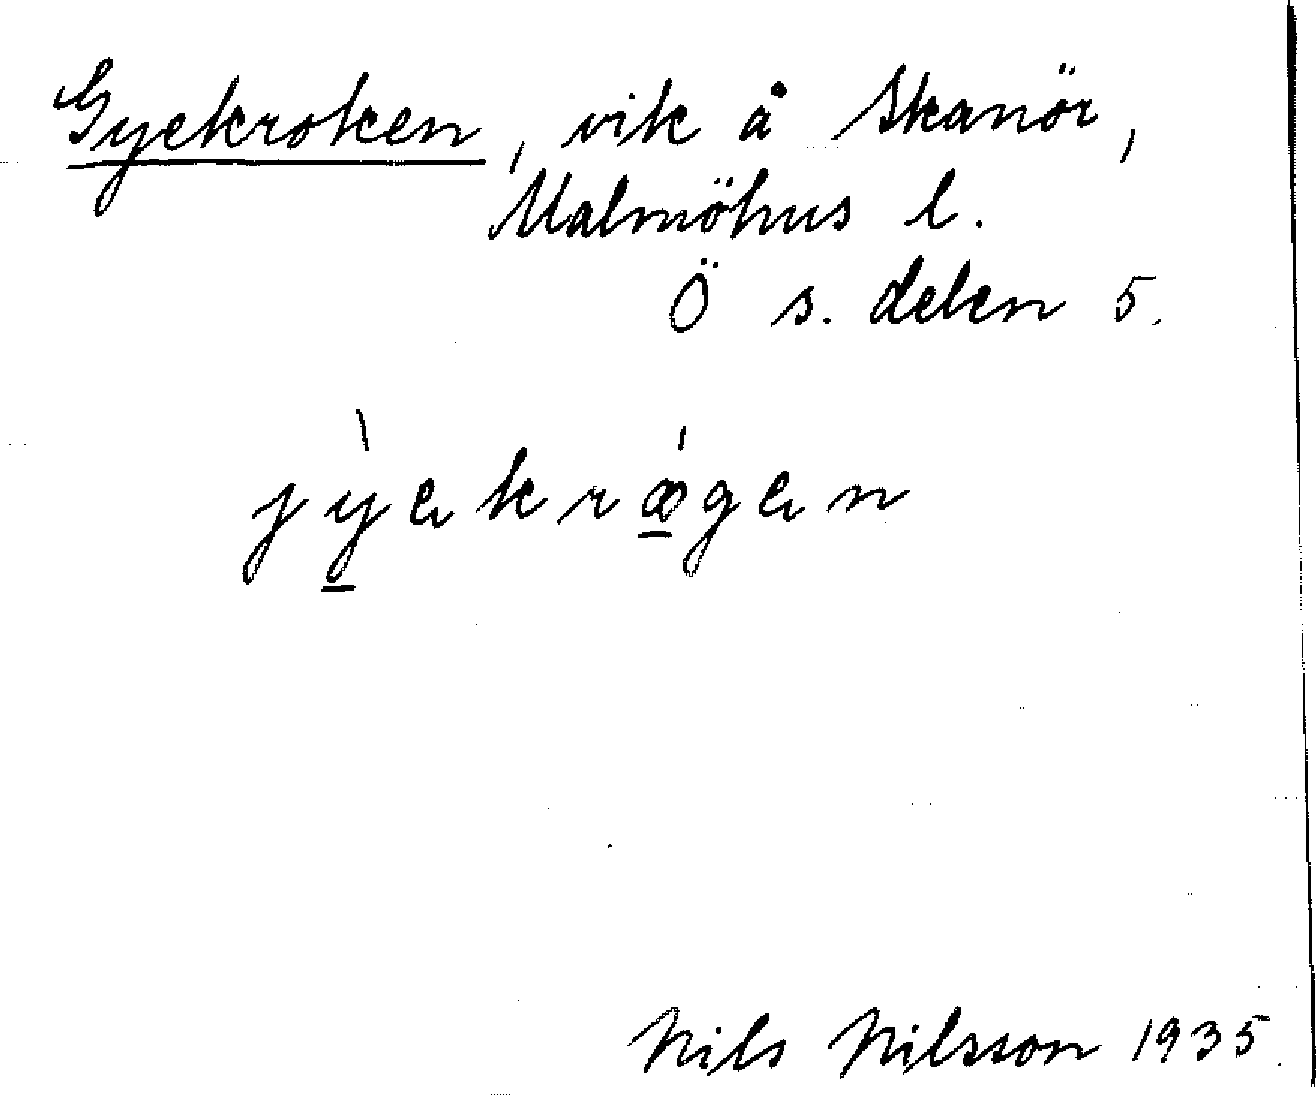 Gyekroken, vik å Skanör,
Malmöhus l.
Ö s. delen 5.
jỳ̲ekrǿ̲gen
Nils Nilsson 1935.